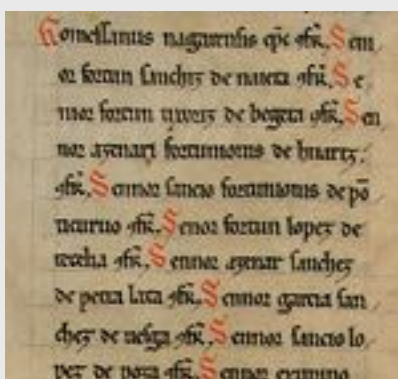 Gomessanus nagarensis ep̄c ɔfir̄. Senn
or fortun sanchiz de naiera ɔfir̄. Se
nnor fortun de begera ɔfir̄. Sen
nor azenari fortunionis de huartz
ɔfir̄. Sennor sancio fortunionis de pō
ticuruo ɔfir̄. Senor fortun lopez de
ɔfir̄. Sennor azenar sanchez
de petra lata ɔfir̄. Sennor garcia san
chez de ɔfir̄. Sennor sancio lo
pez de poza ɔfir̄. Sennor eximino